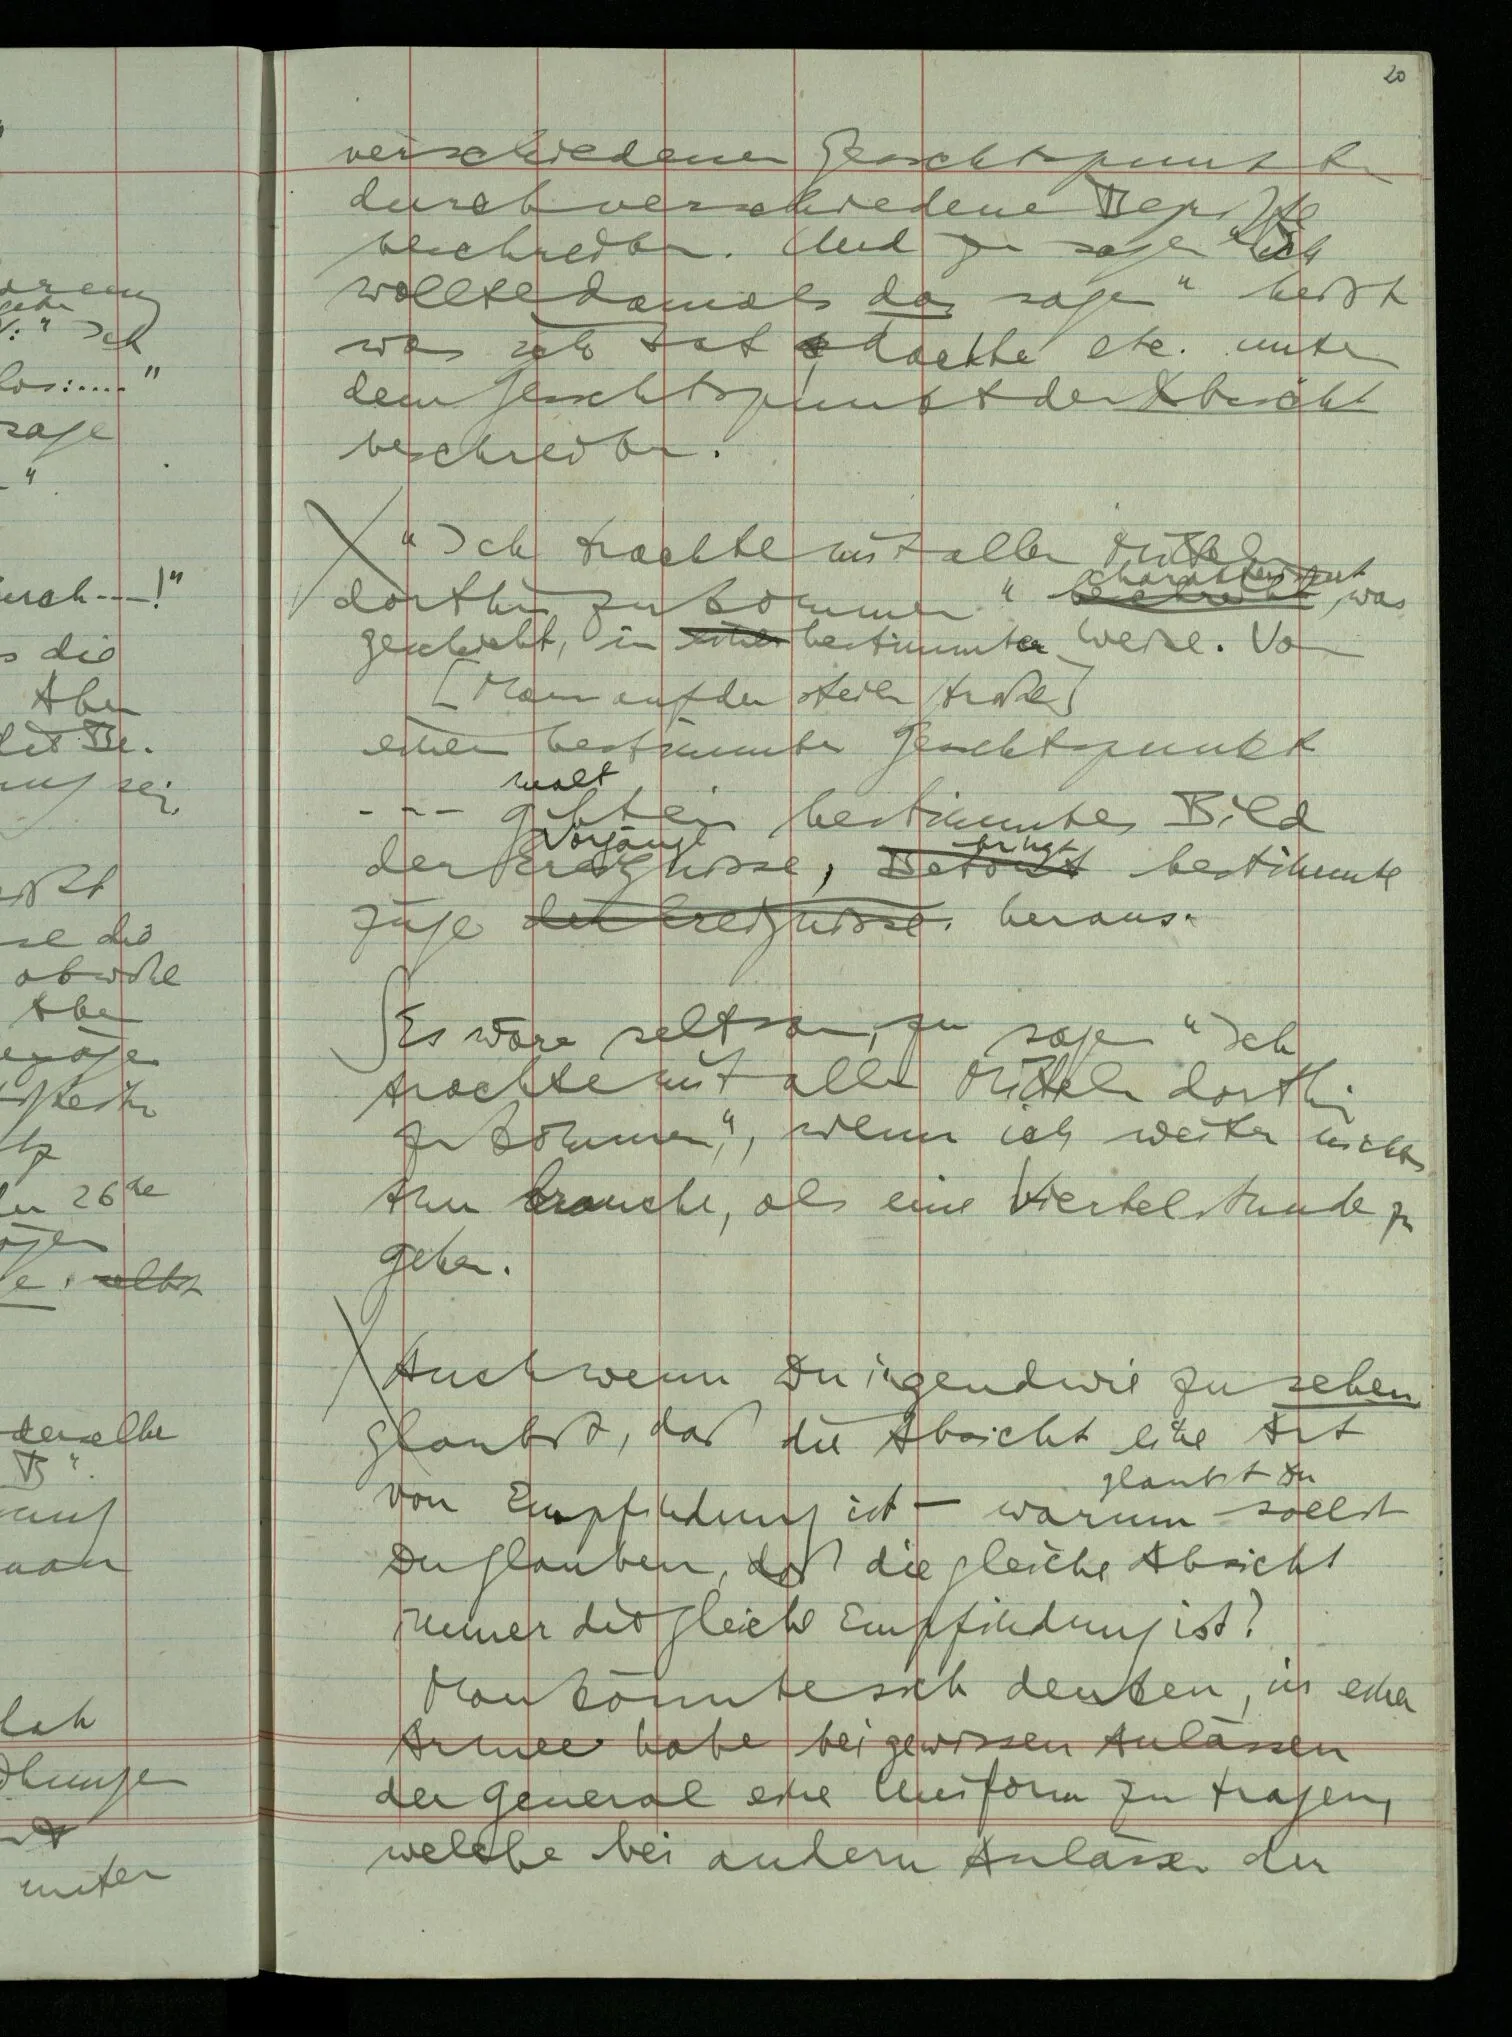 20
verschiedenen Gesichtspunkten
durch verschiedene Begriffe
beschreiben. Und zu sagen "ich
wollte damals das sagen" heißt
was ich tat, dachte etc. unter
dem Gesichtspunkt der Absicht
beschreiben.
"Ich trachte mit allen Mitteln
charakterisiert
dorthin zu kommen" beschreibt, was
geschieht, in einer bestimmten Weise. Von
[Mann auf der steilen Straße]
einem bestimmten Gesichtspunkt
malt
--- gibt ein bestimmtes Bild
Vorgänge bringt
der Ereignisse, Betont bestimmte
Züge der Ereignisse. heraus.
Es wäre seltsam, zu sagen "Ich
trachte mit allen Mitteln dorthin
zu kommen", wenn ich weiter nichts
tun brauche, als eine Viertelstunde zu
gehen.
Auch wenn Du irgendwie zu sehen
glaubst, daß die Absicht eine Art
glaubst Du
von Empfindung ist – warum sollst
Du glauben, daß die gleiche Absicht
immer die gleiche Empfindung ist?
Man könnte sich denken, in einer
Armee habe bei gewissen Anlässen
der General eine Uniform zu tragen,
welche bei andern Anlässen der
orung
V: " Ich
los:....."
sage
"
urch---!"
s die
Aber
die Be.
ung sei,
ißt
se die
obwohl
Aber
26
selbst
derselbe
B".
auf
man
unter